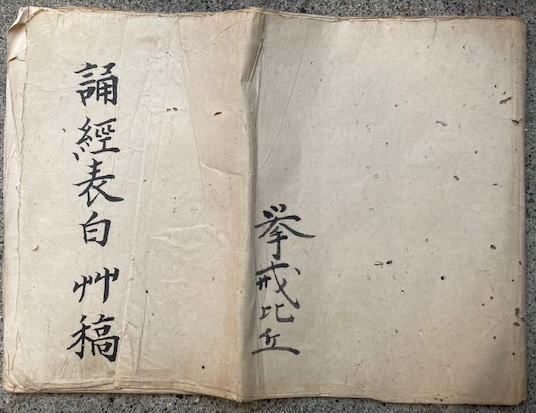 誦經表白艸稿
挙戒比丘